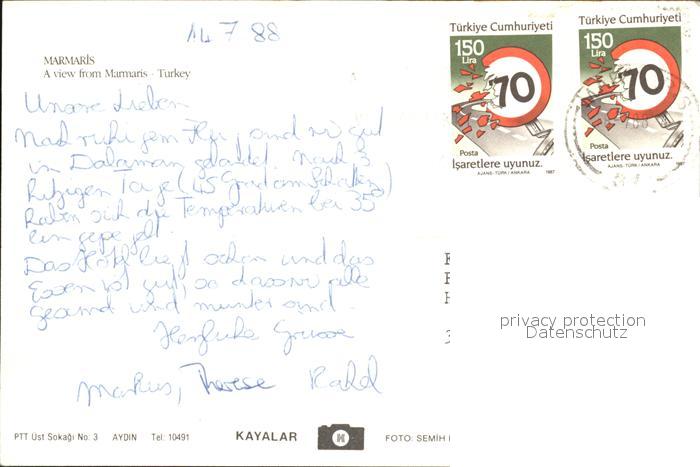 14 7 88
MARMARİS
A view from Marmaris - Turkey
Unsere Lieben
Nach ruhigem Flug sind wir gut
in Dalaman gelandet. Nach 3
hitzigen Tage (45 Grad am Schatten)
haben sich die Temperaturen bei 35°
eingependelt.
Das Hotel liegt schön und das
Essen ist gut, so dass wir alle
gesund und munter sind.
Herzliche Grüsse
Markus, Therese
Türkiye Cumhuriyeti
150
Lira
70
Posta
İşaretlere uyunuz.
AJANS-TÜRK / ANKARA 1987
Türkiye Cumhuriyeti
150
Lira
70
Posta
İşaretlere uyunuz.
AJANS-TÜRK / ANKARA 1987
privacy protection
Datenschutz
PTT Üst Sokağı No: 3 AYDIN Tel: 10491 KAYALAR FOTO: SEMİH